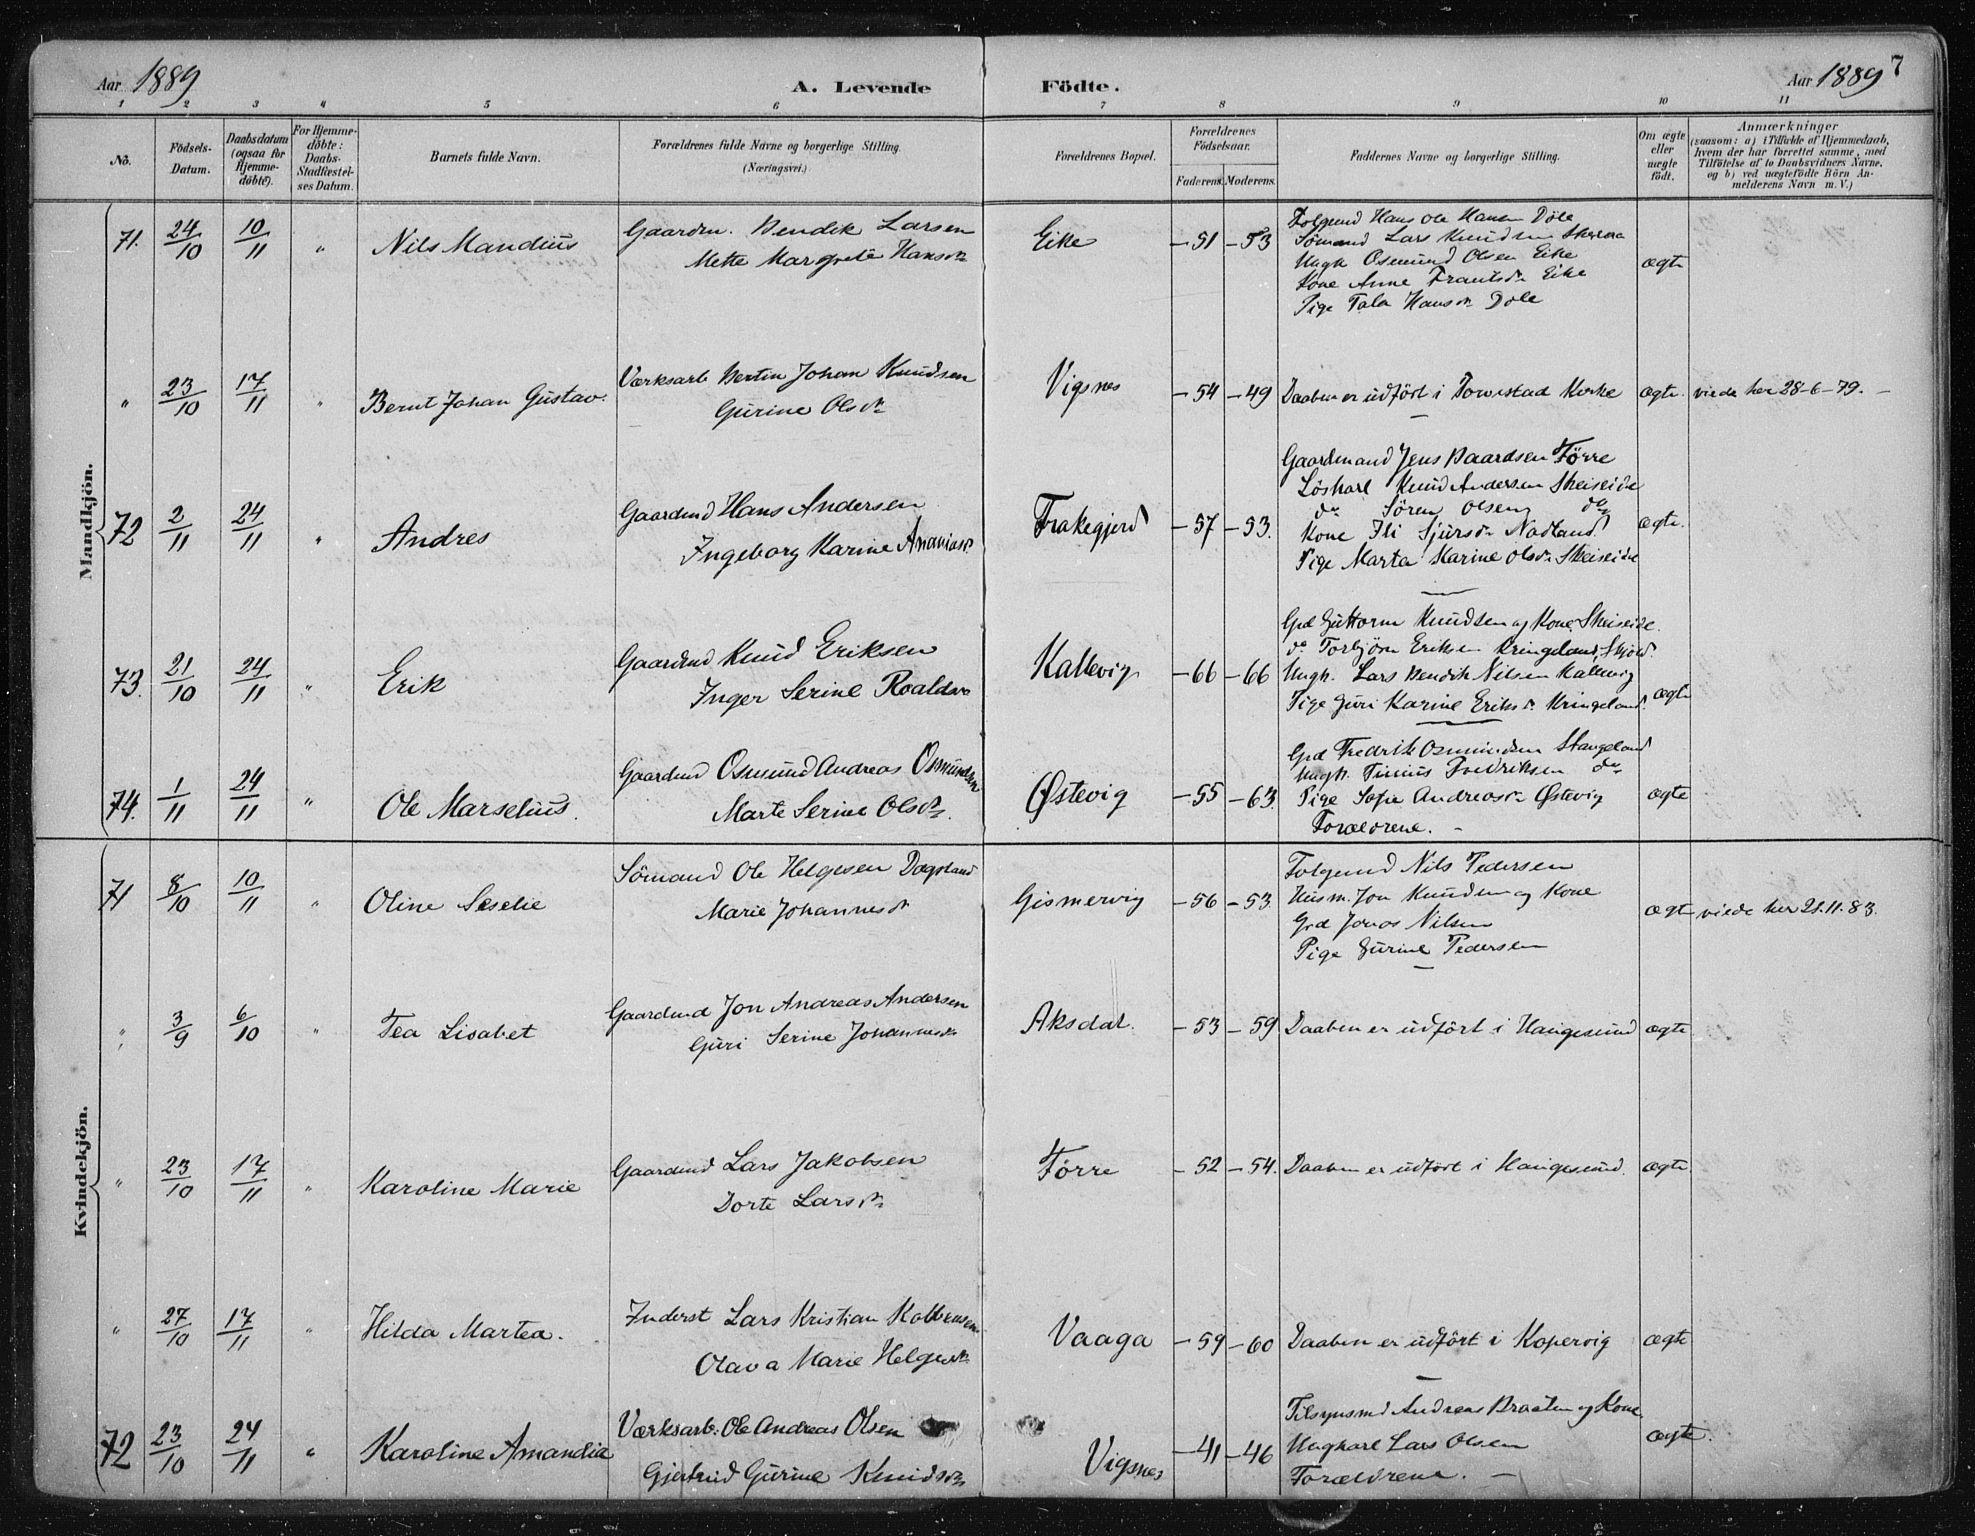 Aar 1889
A. Levende
Födte.
Aar 1889
7
1 2 3 4 5 6 7 8 9 10 11
No.
Födsels-
Datum.
Daabsdatum
(ogsaa for
Hjemme-
döbte).
For Hjemme-
döbte:
Daabs-
Stadfæstel-
ses Datum.
Barnets fulde Navn.
Forældrenes fulde Navne og borgerlige Stilling.
(Næringsvei.)
Forældrenes Bopæl.
Forældrenes
Födselsaar.
Faderens. Moderens.
Faddernes Navne og borgerlige Stilling.
Om ægte
eller
uægte
födt.
Anmærkninger
(saasom: a) i Tilfælde af Hjemmedaab,
hvem der har forrettet samme, med
Tilföielse af to Daabsvidners Navne,
og b) ved uægtefödte Börn An-
melderens Navn m. V.)
Mandkjön.
71. 24/10 10/11 " Nils Mandius
Gaardm. Bendik Larsen
Mette Margrete Hansdr
Eike -51 -53
Folgemd Hans Ole Hansen Dole
Sömand Lars Knudsen
Ungk Osmund Olsen Eike
Kone Anne Frantsdr Eike
Pige Tala Hansdr Dole
ægte
" 23/10 17/11 " Bernt Johan Gustav.
Værksarb Bertin Johan Knudsen
Gurine Olsdr
Vigsnes -54 -49 Daaben er udfört i Torvestad Kirke ægte. viede her 28-6-79. -
72 2/11 24/11 " Andres
Gaardmd Hans Andersen
Ingeborg Karine Ananiasdr
Frakegjerd -57 -53.
Gaardmand Jens Baardsen Førre
Löskarl Knud Andersen Skeiseide
do Sören Olsen do
Kone Ili Sjursdr Nodland
Pige Marta Karine Olsdr Skeiseide
ægte.
73. 21/10 24/11 " Erik
Gaardmd Knud Eriksen
Inger Serine Roaldsdr
Kallevig -66 -66
Grd Guttorm Knudsen og Kone Skeiseide.
do Torbjörn Eriksen Kringeland, Skjold.
Ungk. Lars Bendik Nilsen Kallevig
Pige Guri Karine Eriksdr Kringeland.
ægte
74. 1/11 24/11 " Ole Marselius.
Gaardmd Osmund Andreas Osmundsen
Marte Serine Olsdr.
Østevig -55 -63.
Grd Fredrik Osmundsen Stangeland
Ungk. Tinius Fredriksen do
Pige Sofie Andreasdr Østevig
Forældrene. -
ægte
Kvindekjön.
71 8/10 10/11 " Oline Seselie
Sömand Ole Helgesen Dagsland
Marie Johannesdr
Gismervig -56 -53.
Folgemd Nils Pedersen
Husm. Jon Knudsen og Kone
Grd Jonas Nilsen
Pige Gurine Pedersen
ægte viede her 21.11.83.
" 3/9 6/10 " Tea Lisabet
Gaardmd Jon Andreas Andersen
Guri Serine Johannesdr
Aksdal. -53 -59 Daaben er udfört i Haugesund ægte
" 23/10 17/11 " Karoline Marie
Gaardmd Lars Jakobsen
Dorte Larsdr
Förre -52 -54. Daaben er udfört i Haugesund. ægte
" 27/10 17/11 " Hilda Martea.
Inderst Lars Kristian Kolbensen
Olava Marie Helgesdr
Vaaga -59 -60 Daaben er udfört i Kopervig ægte
72 23/10 24/11 " Karoline Amandia
Værksarb. Ole Andreas Olsen
Gjertrud Gurine Knudsdr
Vigsnes -41 -46
Tilsynsmd Andreas Braaten og Kone
Ungkarl Lars Olsen
Forældrene. -
ægte.